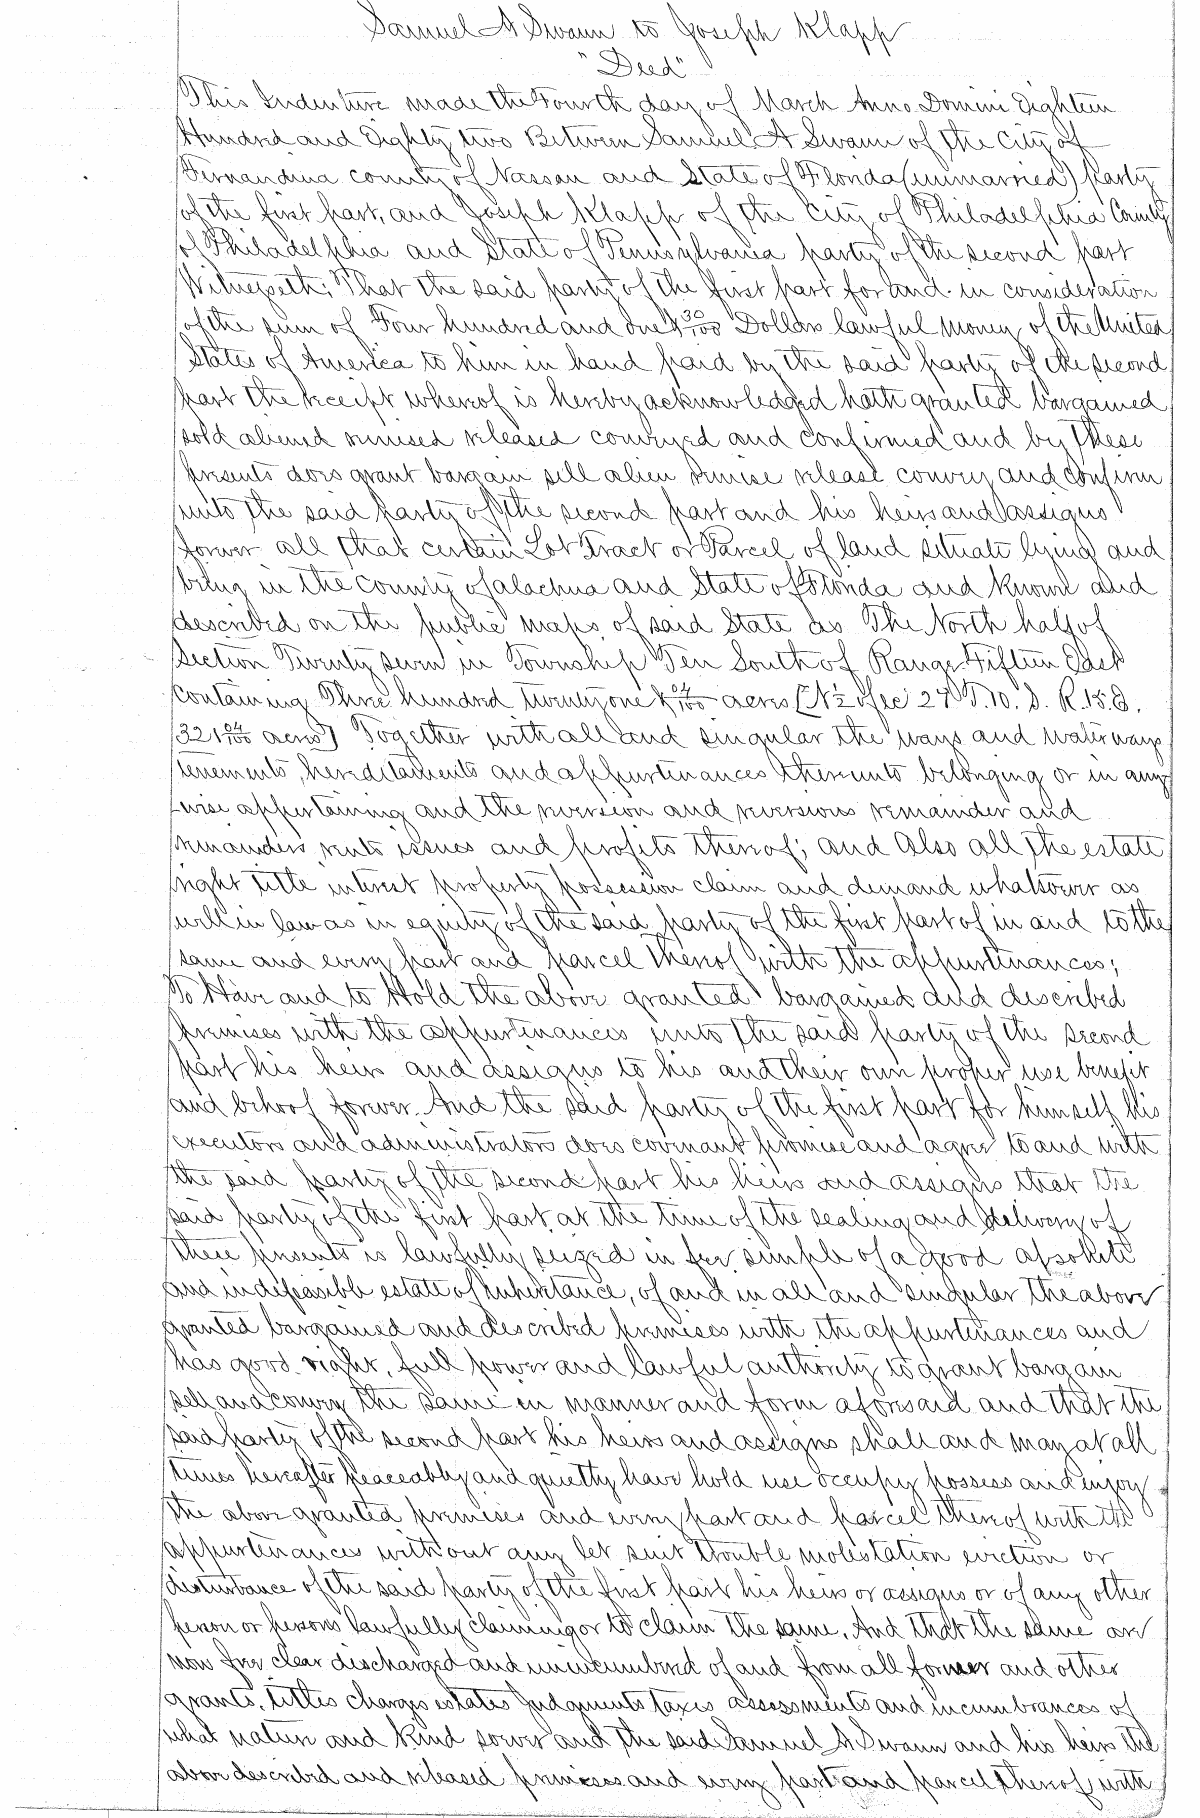 Samuel A Swann to Joseph Klapp
"Deed"
This Indenture made the Fourth day of March Anno Domini Eighteen
Hundred and Eighty two Between Samuel A Swann of the City of
Fernandina county of Nassau and State of Florida (unmarried) party
of the first part, and Joseph Klapp of the City of Philadelphia County
of Philadelphia and State of Pennsylvania party of the second part
Witnesseth; That the said party of the first part for and in consideration
of the sum of Four hundred and one & 30/100 Dollars lawful money of the United
States of America to him in hand paid by the said party of the second
part the receipt whereof is hereby acknowledged hath granted bargained
sold aliened remised released conveyed and confirmed and by these
presents does grant bargain sell alien remise release convey and confirm
unto the said party of the second part and his heirs and assigns
forever all that certain Lot Tract or Parcel of land situate lying and
being in the County of Alachua and State of Florida and known and
described on the public maps of said State as The North half of
Section Twenty seven in Township Ten South of Range Fifteen East
containing Three hundred twenty one & 04/100 acres (N½ of Sec 27 T.10. S. R.15.E.
321 04/100 acres) Together with all and singular the ways and waterways
tenements, hereditaments and appurtenances thereunto belonging or in any
-wise appertaining and the reversion and reversions remainder and
remainders rents issues and profits thereof; and Also all the estate
right title interest property possession claim and demand whatsoever as
well in law as in equity of the said party of the first part of in and to the
same and every part and parcel thereof with the appurtenances;
To Have and to Hold the above granted bargained and described
premises with the appurtenances unto the said party of the second
part his heirs and assigns to his and their own proper use benefit
and behoof forever. And the said party of the first part for himself his
executors and administrators does covenant promise and agree to and with
the said party of the second part his heirs and assigns that the
said party of the first part at the time of the sealing and delivery of
these presents is lawfully seized in fee simple of a good absolute
and indefeasible estate of Inheritance, of and in all and singular the above
granted bargained and described premises with the appurtenances and
has good right, full power and lawful authority to grant bargain
sell and convey the same in manner and form aforesaid and that the
said party of the second part his heirs and assigns shall and may at all
times hereafter peaceably and quietly have hold use occupy possess and enjoy
the above granted premises and every part and parcel thereof with the
appurtenances without any let suit trouble molestation eviction or
disturbance of the said party of the first part his heirs or assigns or of any other
person or persons lawfully claiming or to claim the same. And that the same are
now free clear discharged and unincumbered of and from all former and other
grants, titles charges estates judgments taxes assessments and incumbrances of
what nature and kind soever and the said Samuel A Swann and his heirs the
above described and released premises and every part and parcel thereof with